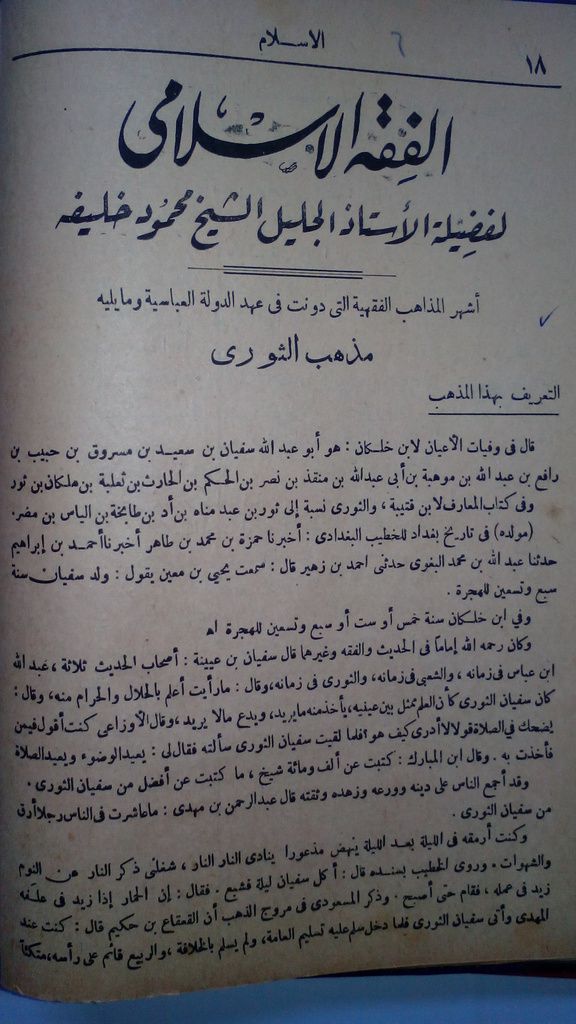 ١٨
الاسلام
الفقه الاسلامى
لفضيلة الأستاذ الجليل الشيخ محمود خليفه
أشهر المذاهب الفقهية التى دونت فى عهد الدولة العباسية ومايليه
مذهب الثورى
التعريف بهذا المذهب
قال فى وفيات الأعيان لابن خلكان : هو أبو عبد الله سفيان بن سعيد بن مسروق بن حبيب بن
رافع بن عبد الله بن موهبة بن أبى عبدالله بن منقذ بن نصر بن الحكم بن الحارث بن ثعلبة بن ملكان بن ثور
وفى كتاب المعارف لابن قتيبة ، والثورى نسبة إلى ثور بن عبد مناه بن أد بن طابخة بن الياس بن مضر .
(مولده) فى تاريخ بغداد للخطيب البغدادى : أخبرنا حمزة بن محمد بن طاهر أخبرنا أحمد بن إبراهيم
حدثنا عبد الله بن محمد البغوى حدثنى احمد بن زهير قال : سمعت يحيى بن معين يقول : ولد سفيان سنة
سبع وتسعين للهجرة .
وفي ابن خلكان سنة خمس أو ست أو سبع وتسعين للهجرة اه
وكان رحمه الله إماماً فى الحديث والفقه وغيرها قال سفيان بن عيينة : أصحاب الحديث ثلاثة ، عبد الله
ابن عباس فى زمانه ، والشعبى فى زمانه ، والثورى فى زمانه ، وقال : مارأيت أعلم بالحلال والحرام منه ، وقال :
كان سفيان الثورى كأن العلم ممثل بين عينيه ، يأخذ منه مايريد ، ويدع مالا يريد ، وقال الأوزاعى كنت أقول فيمن
يضحك فى الصلاة قولا لا أدرى كيف هو ؟ فلما لقيت سفيان الثورى سألته فقال لى : يعيد الوضوء ويعيد الصلاة
فأخذت به . وقال ابن المبارك : كتبت عن ألف ومائة شيخ ، ما كتبت عن أفضل من سفيان الثورى .
وقد أجمع الناس على دينه وورعه وزهده وثقته قال عبدالرحمن بن مهدى : ماعاشرت فى الناس رجلا أرق
من سفيان الثورى .
وكنت أرمقه فى الليلة بعد الليلة ينهض مذعورا ينادى النار النار ، شغلنى ذكر النار عن النوم
والشهوات . وروى الخطيب بسنده قال : أكل سفيان ليلة فشبع . فقال : إن الحمار إذا زيد فى علفه
زيد فى عمله ، فقام حتى أصبح . وذكر المسعودى فى مروج الذهب أن القعقاع بن حكيم قال : كنت عند
المهدى وأتى سفيان الثورى فلما دخل سلم عليه تسليم العامة ، ولم يسلم بالخلافة ، والربيع قائم على رأسه ، متكئاً